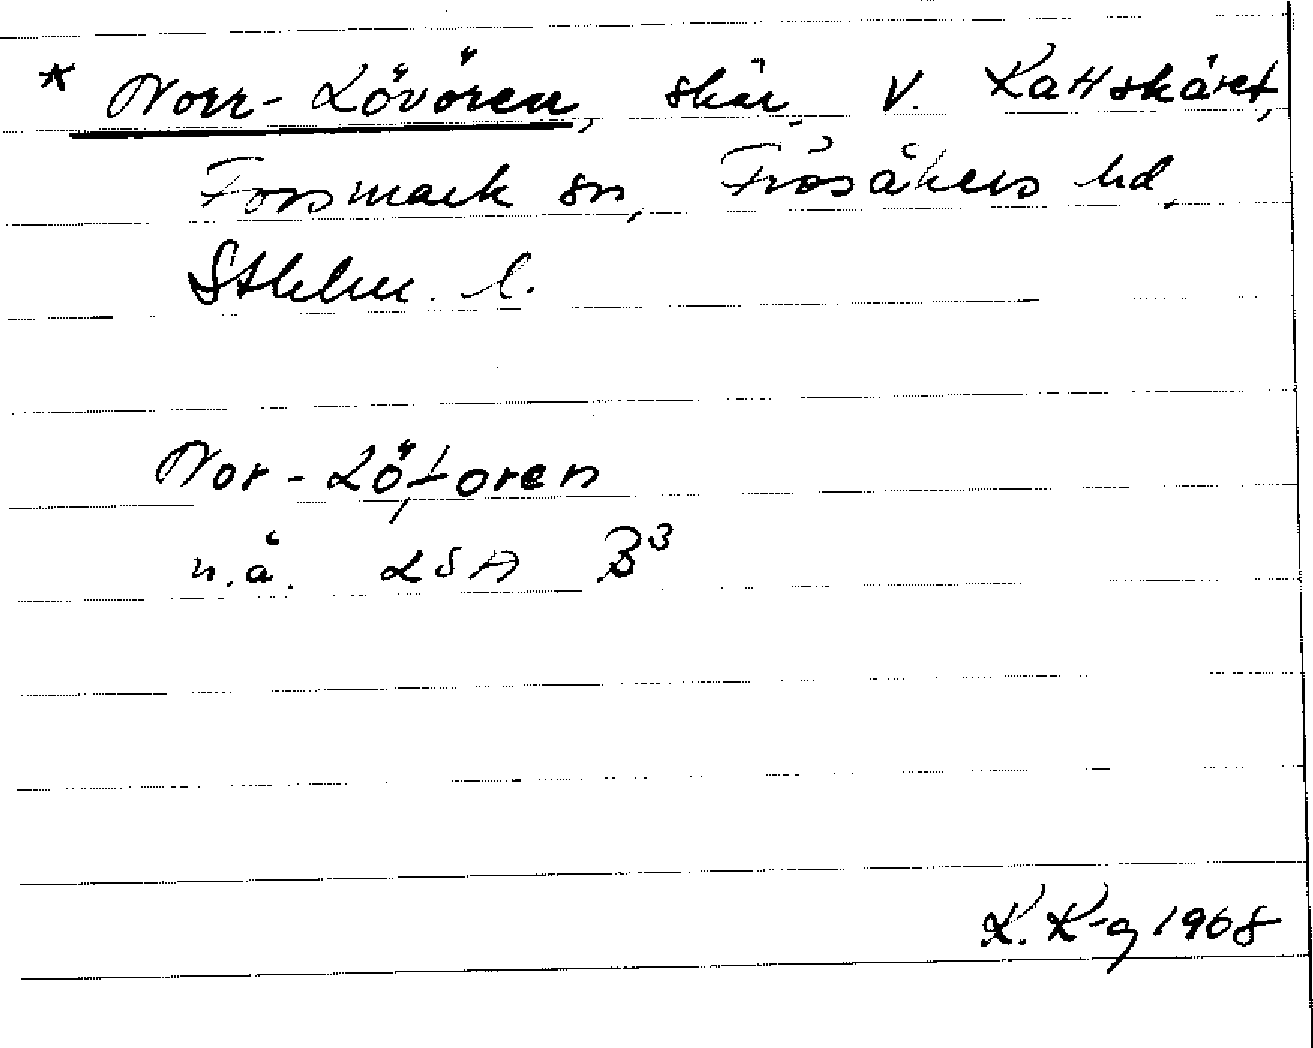 * Norr-Lövören, skär, V. Kattskäret,
Forsmark sn, Frösåkers hd,
Sthlm. l.
Nor-Löforen
n.å. LSA B³
K. K-g 1968